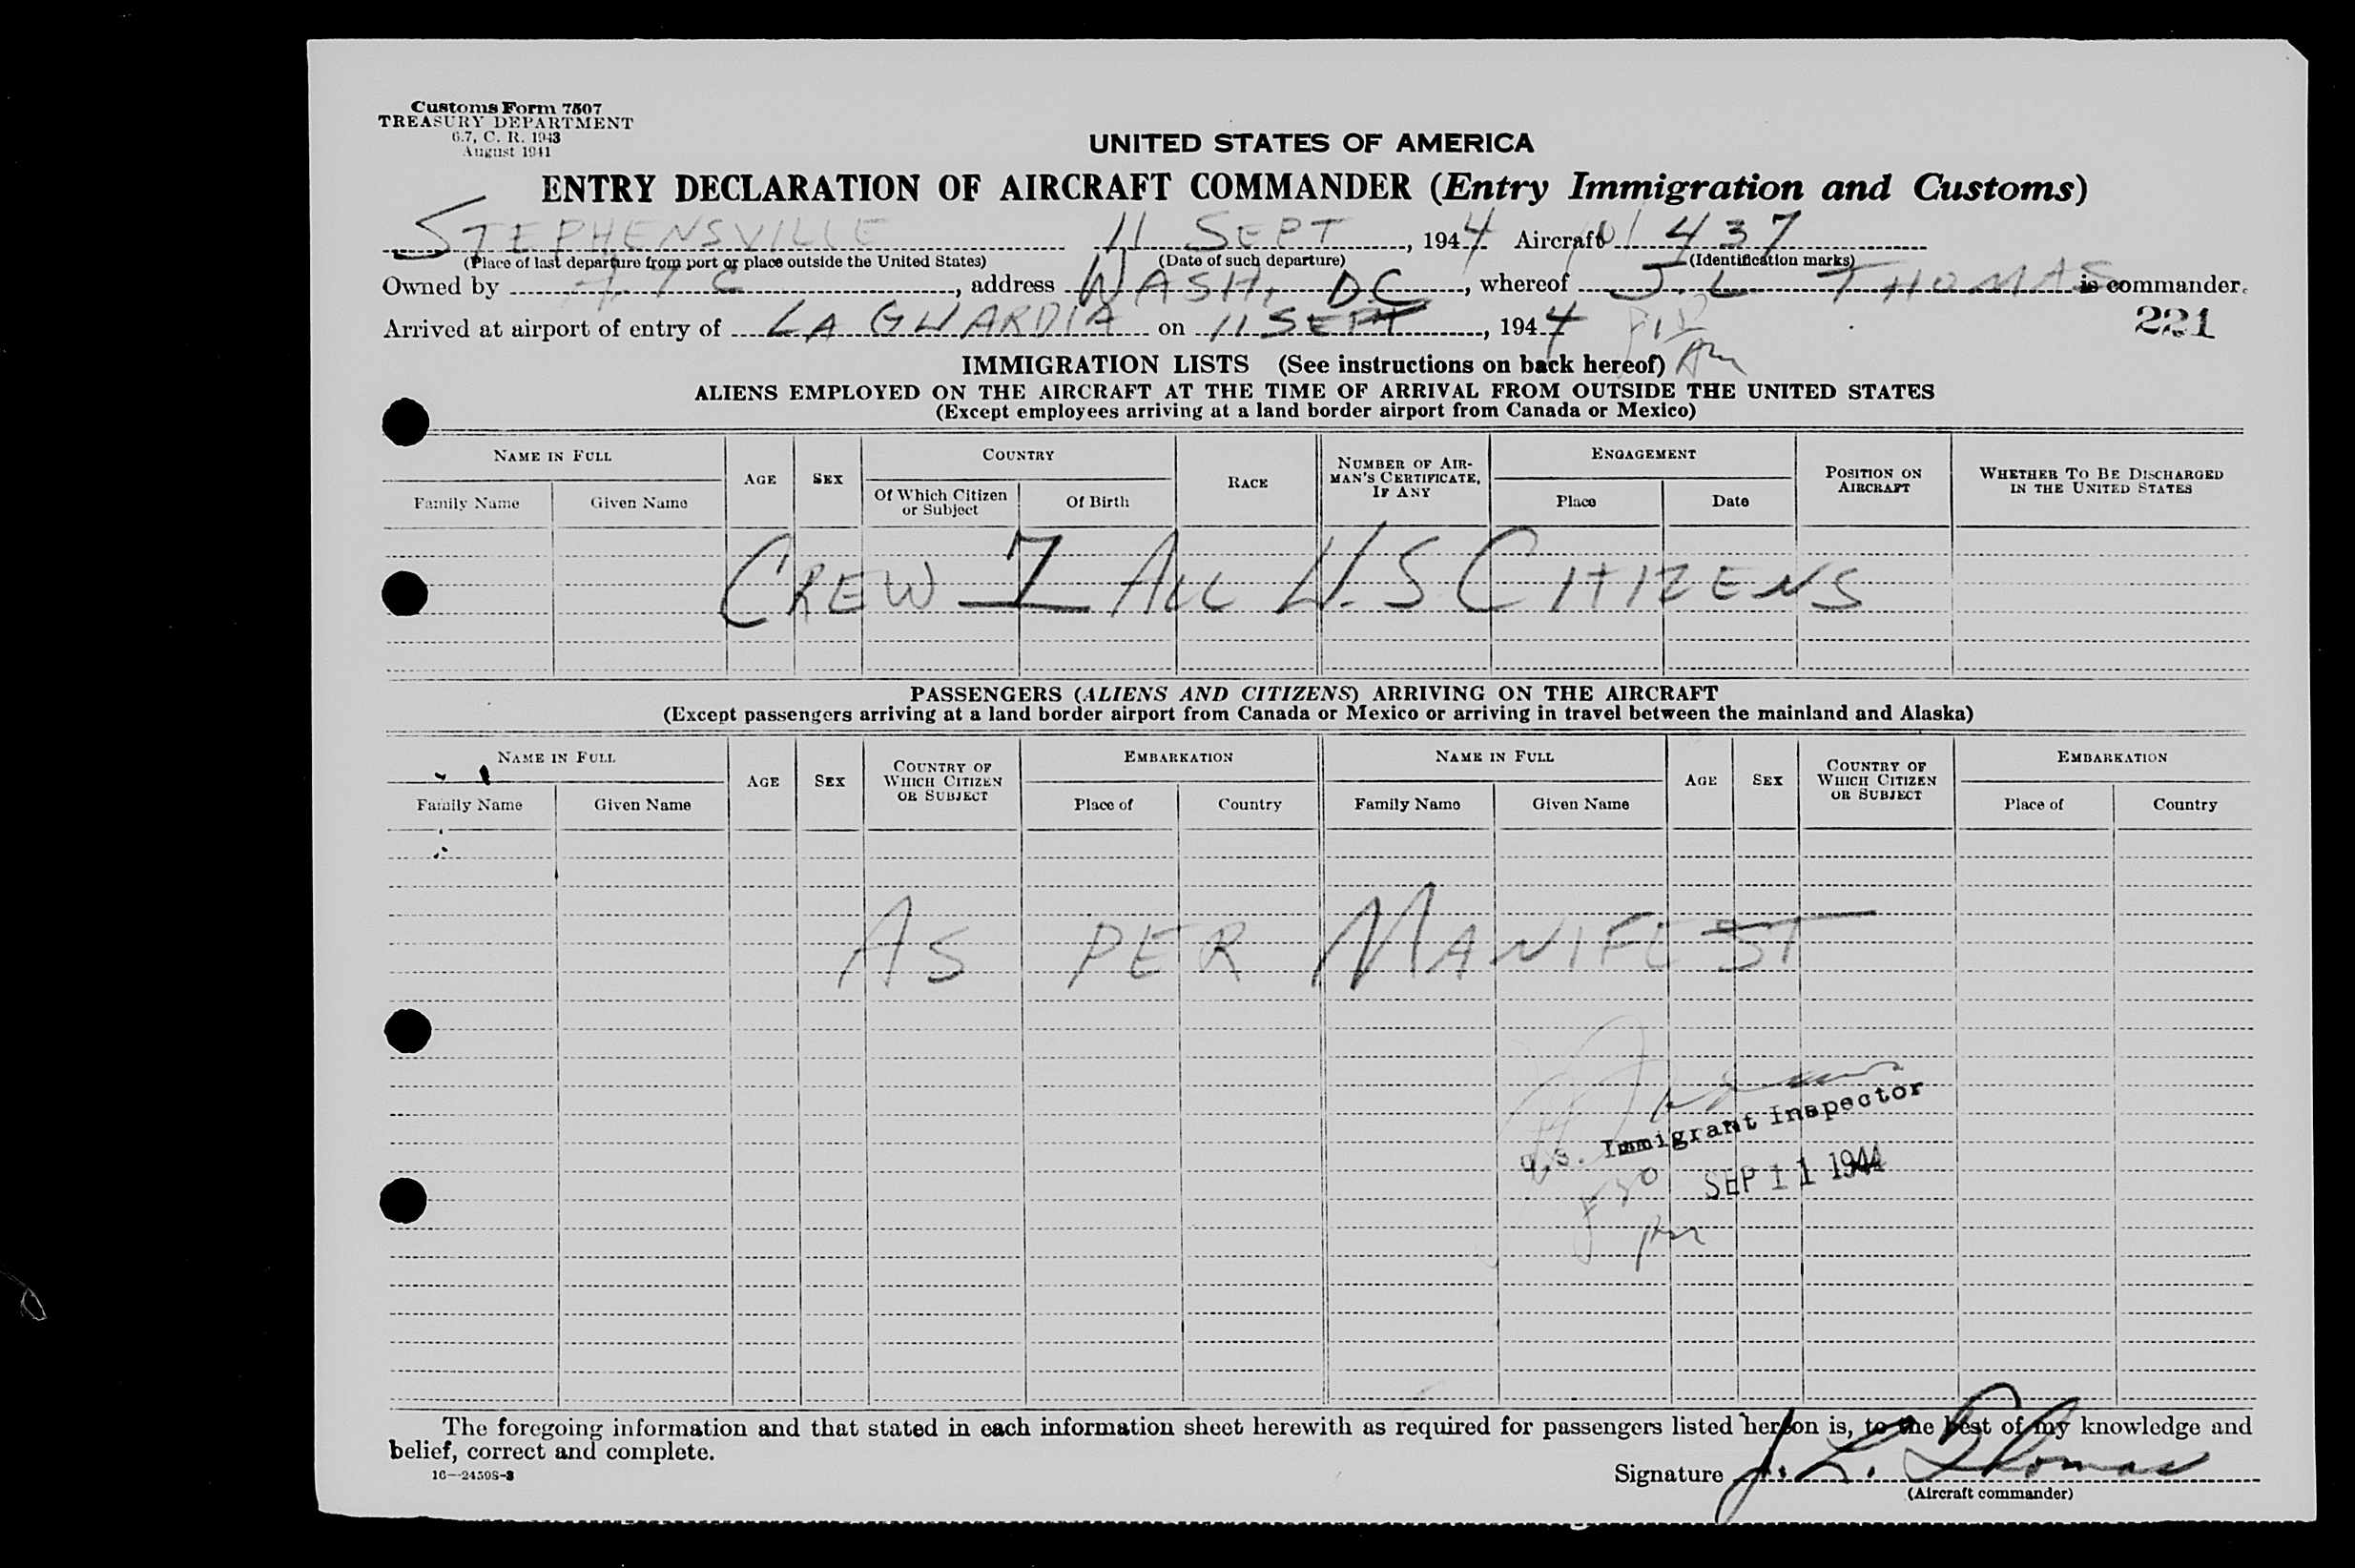 Customs Form 7507
TREASURY DEPARTMENT
6.7, C. R. 1943
August 1941
UNITED STATES OF AMERICA
ENTRY DECLARATION OF AIRCRAFT COMMANDER (Entry Immigration and Customs)
STEPHENSVILLE 11 SEPT, 1944 Aircraft 437
(Place of last departure from port or place outside the United States) (Date of such departure) (Identification marks)
Owned by ATC, address WASH, DC, whereof J. L THOMAS is commander.
Arrived at airport of entry of LA GUARDIA on 11 SEPT, 1944
221
IMMIGRATION LISTS (See instructions on back hereof)
ALIENS EMPLOYED ON THE AIRCRAFT AT THE TIME OF ARRIVAL FROM OUTSIDE THE UNITED STATES
(Except employees arriving at a land border airport from Canada or Mexico)
NAME IN FULL AGE SEX COUNTRY RACE NUMBER OF AIRMAN'S CERTIFICATE, IF ANY ENGAGEMENT POSITION ON AIRCRAFT WHETHER TO BE DISCHARGED IN THE UNITED STATES
Family Name Given Name Of Which Citizen or Subject Of Birth Place Date
CREW 7 ALL U.S CITIZENS
PASSENGERS (ALIENS AND CITIZENS) ARRIVING ON THE AIRCRAFT
(Except passengers arriving at a land border airport from Canada or Mexico or arriving in travel between the mainland and Alaska)
NAME IN FULL AGE SEX COUNTRY OF WHICH CITIZEN OR SUBJECT EMBARKATION NAME IN FULL AGE SEX COUNTRY OF WHICH CITIZEN OR SUBJECT EMBARKATION
Family Name Given Name Place of Country Family Name Given Name Place of Country
AS PER MANIFEST
U.S. Immigrant Inspector
SEP 11 1944
The foregoing information and that stated in each information sheet herewith as required for passengers listed hereon is, to the best of my knowledge and
belief, correct and complete.
16—24598-3
Signature J. L. Thomas
(Aircraft commander)